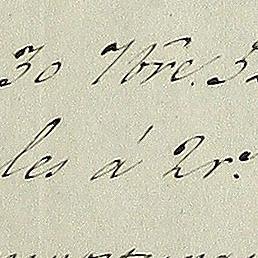 30 7bre. 32
les á 2r.